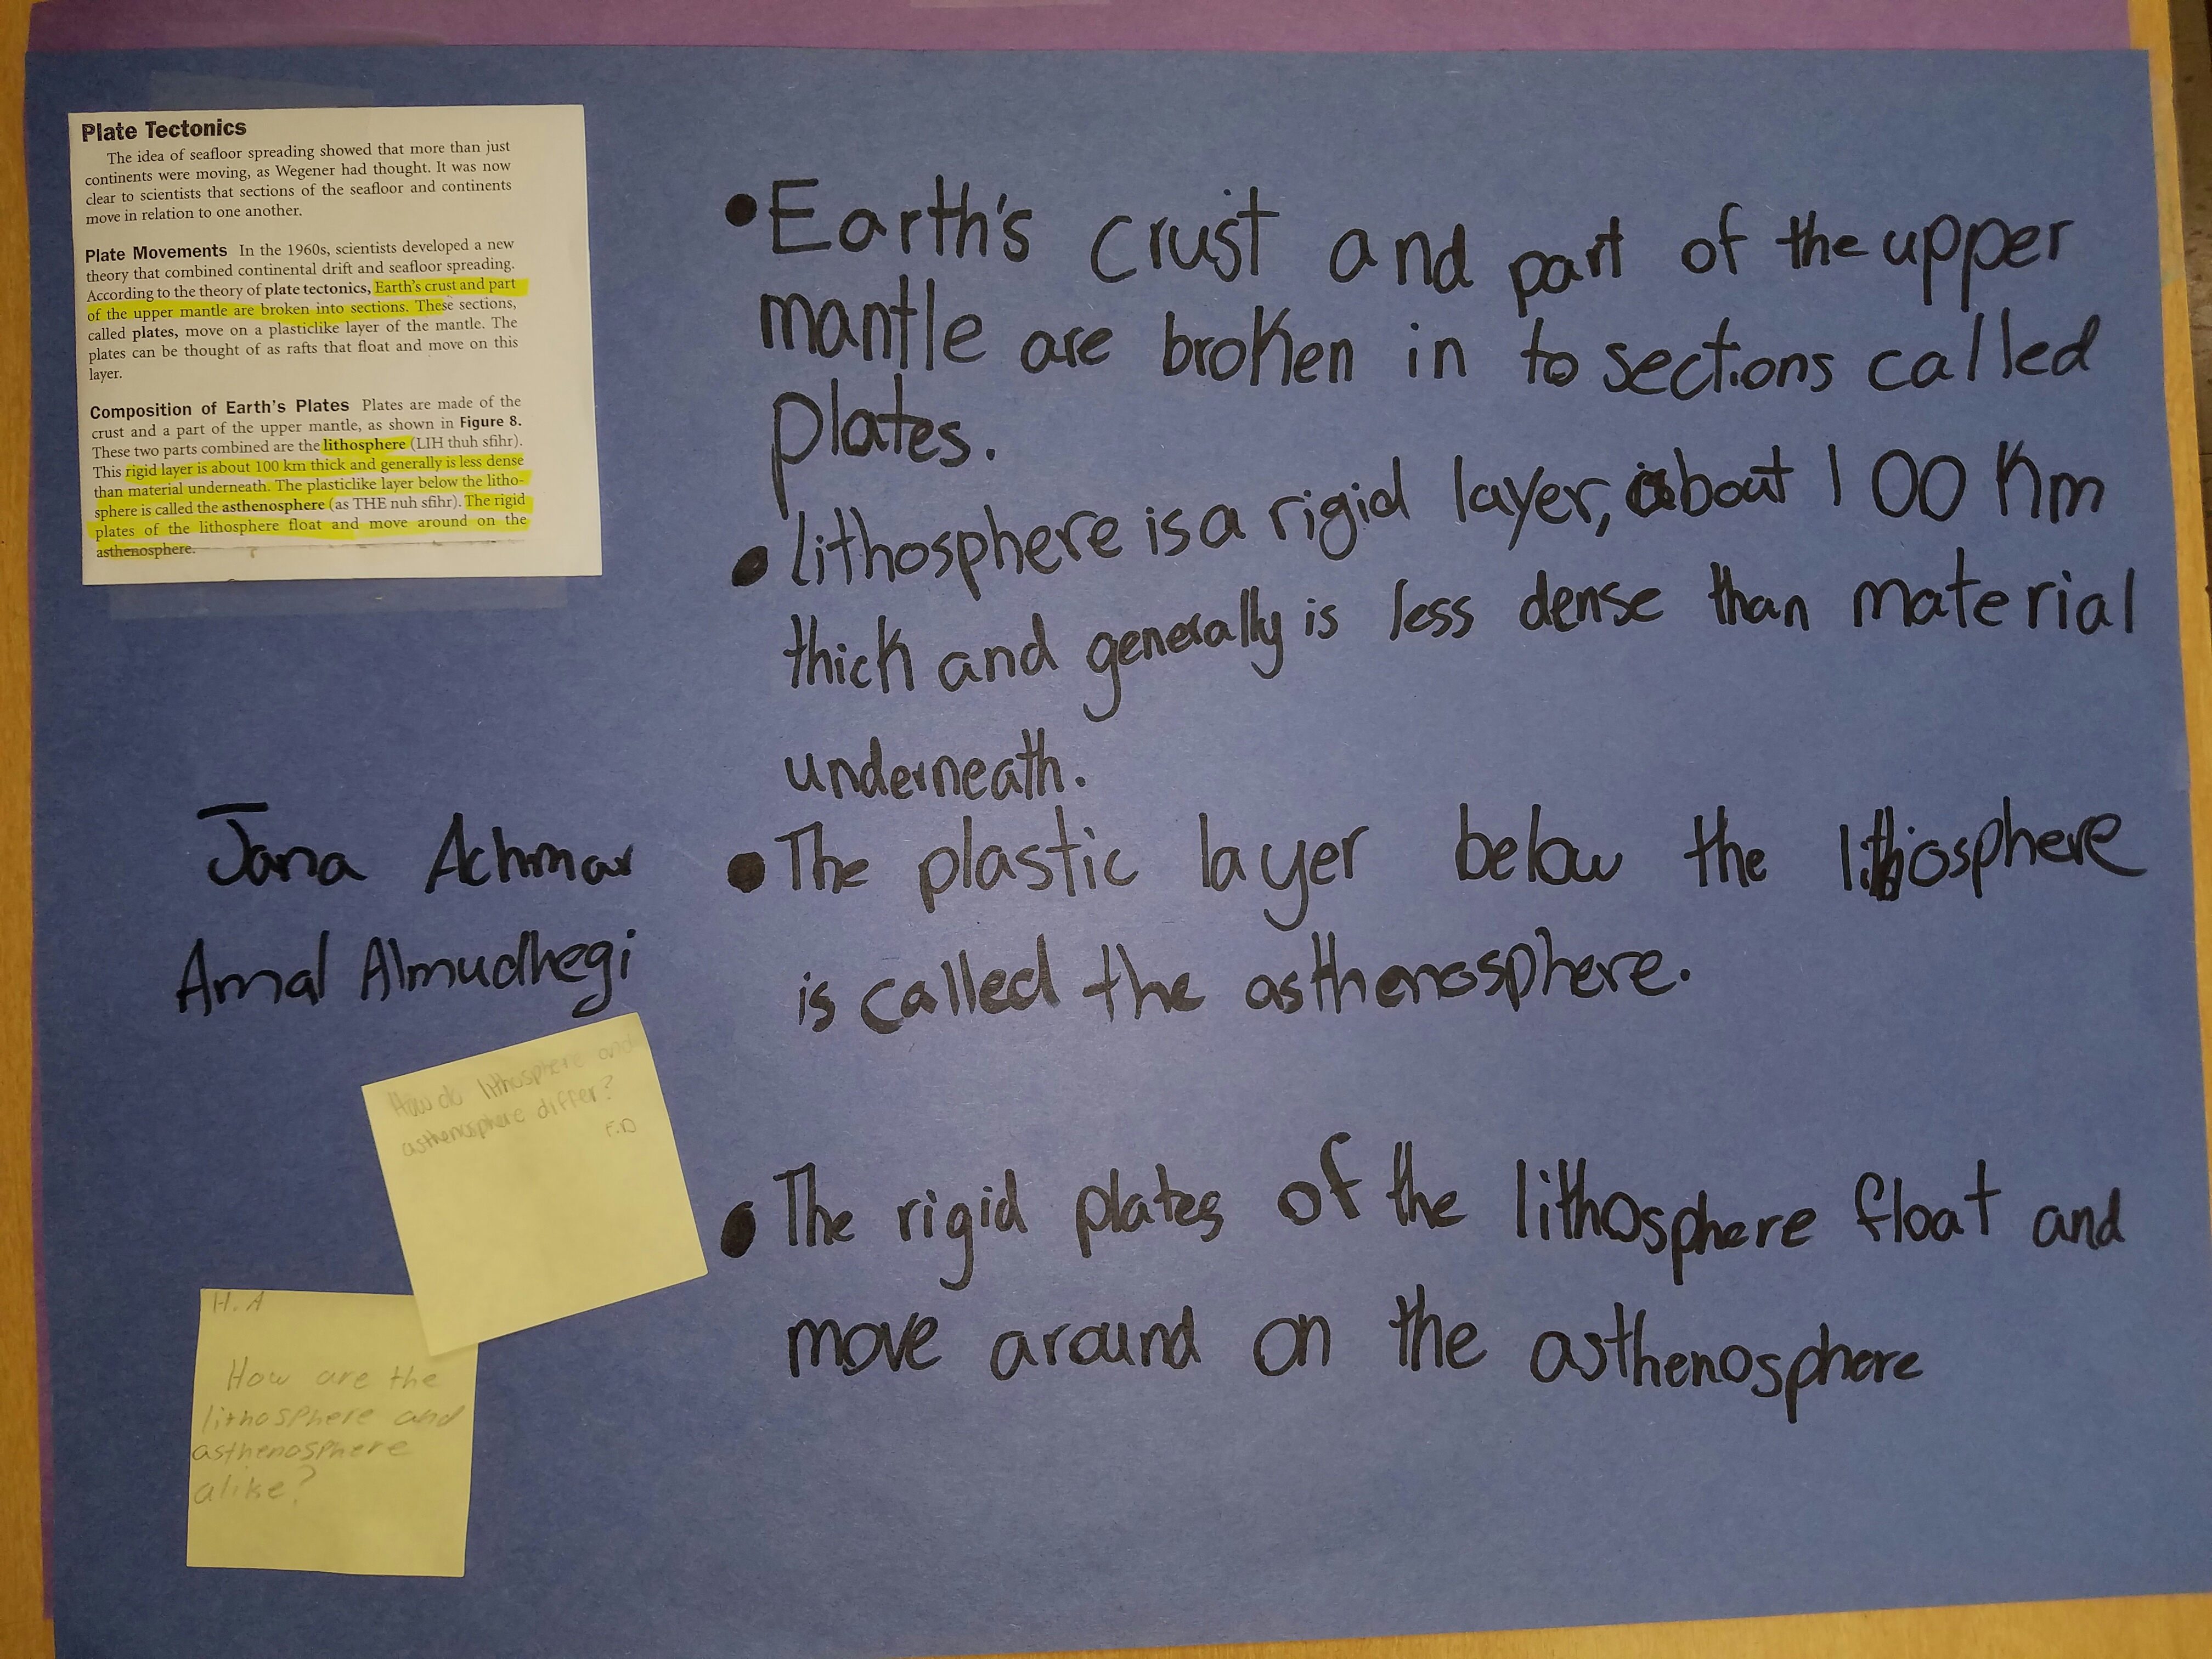 Plate Tectonics
The idea of seafloor spreading showed that more than just
continents were moving, as Wegener had thought. It was now
clear to scientists that sections of the seafloor and continents
move in relation to one another.
Plate Movements In the 1960s, scientists developed a new
theory that combined continental drift and seafloor spreading.
According to the theory of plate tectonics, Earth's crust and part
of the upper mantle are broken into sections. These sections,
called plates, move on a plasticlike layer of the mantle. The
plates can be thought of as rafts that float and move on this
layer.
Composition of Earth's Plates Plates are made of the
crust and a part of the upper mantle, as shown in Figure 8.
These two parts combined are the lithosphere (LIH thuh sfihr).
This rigid layer is about 100 km thick and generally is less dense
than material underneath. The plasticlike layer below the litho-
sphere is called the asthenosphere (as THE nuh sfihr). The rigid
plates of the lithosphere float and move around on the
asthenosphere.
•Earth's crust and part of the upper
mantle are broken in to sections called
plates.
•lithosphere is a rigid layer, about 100 km
thick and generally is less dense than material
underneath.
•The plastic layer below the lithiosphere
is called the asthenosphere.
•The rigid plates of the lithosphere float and
move around on the asthenosphere
Jana Achmar
Amal Almudhegi
How do lithosphere and
asthenosphere differ?
F.D
H.A
How are the
lithosphere and
asthenosphere
alike?